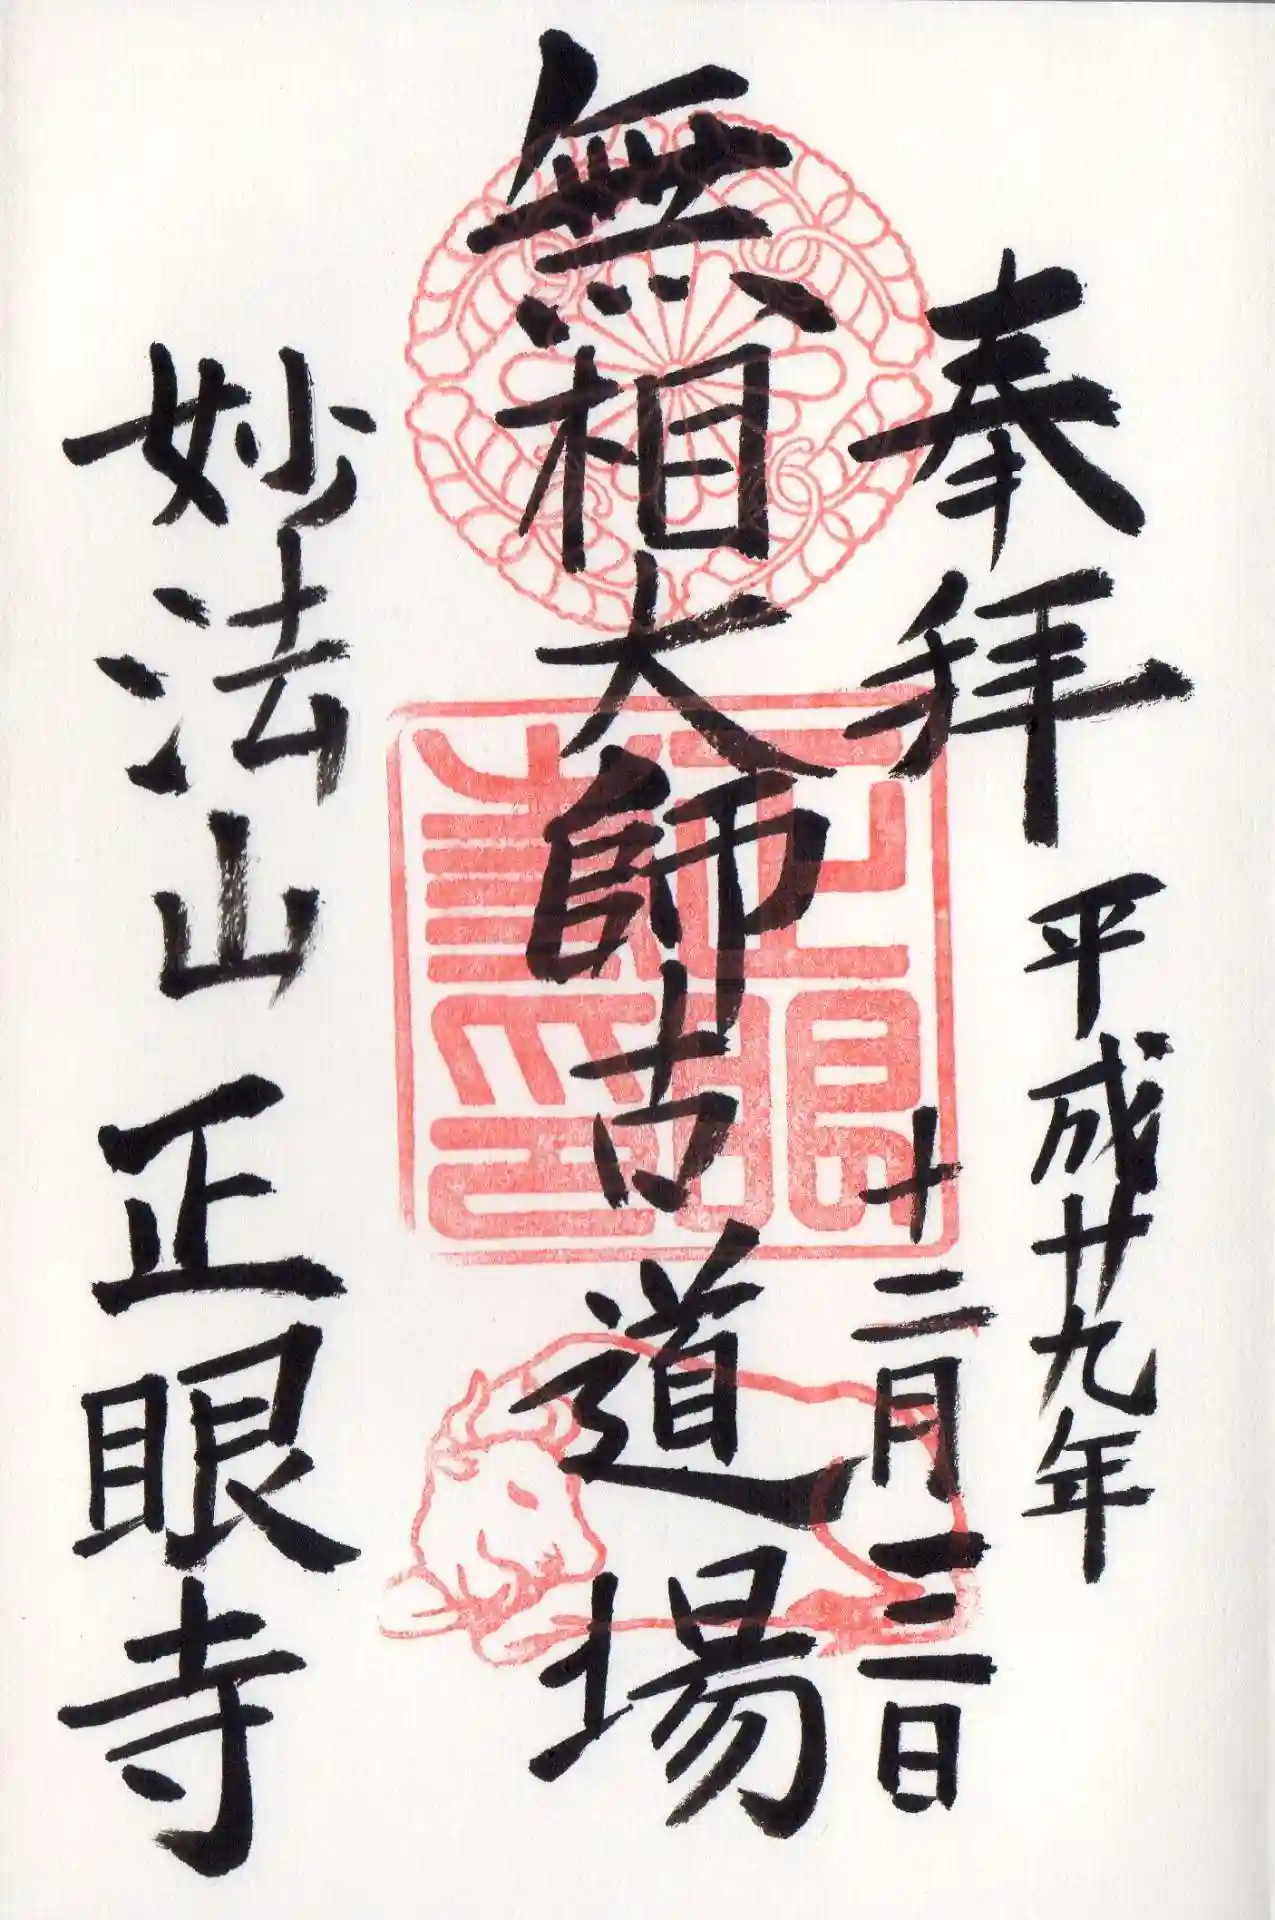 奉拝
平成廿九年
十二月三日
無相大師古道場
妙法山 正眼寺